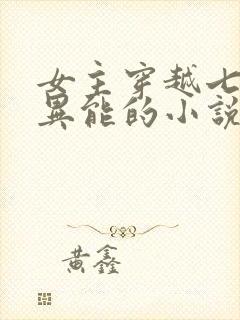 女主穿越七
異能的小說
黃鑫